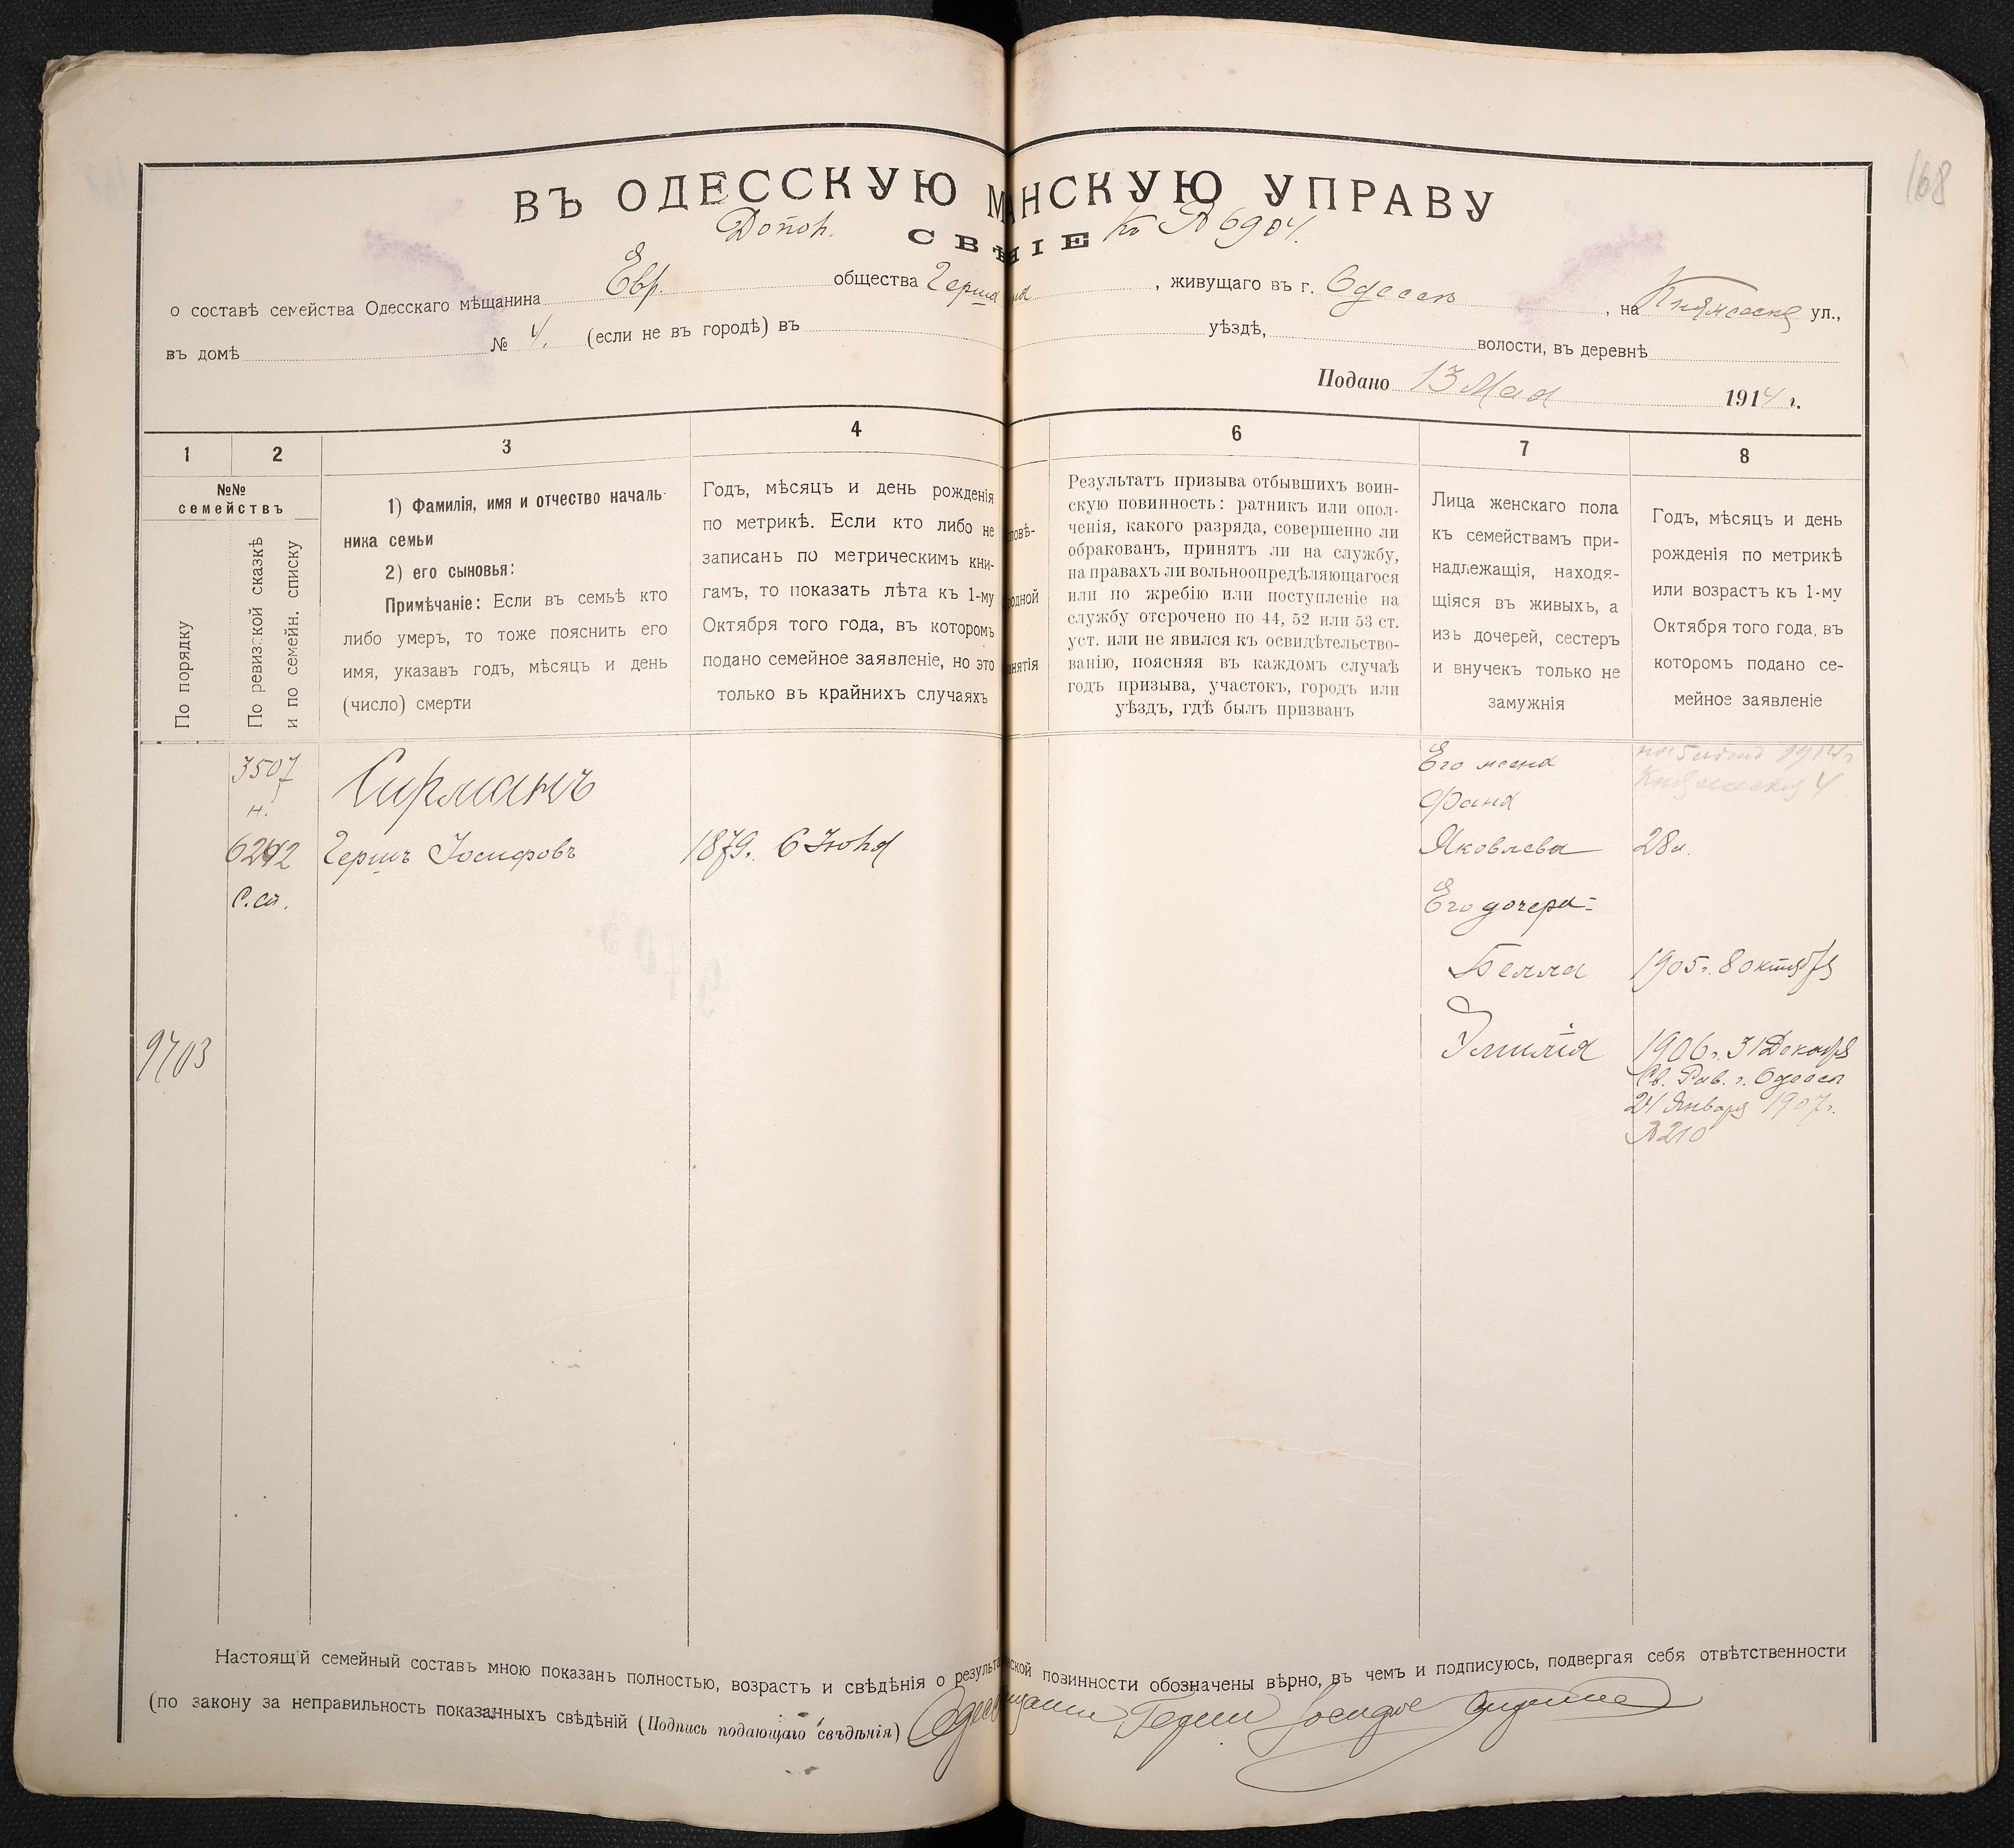 168
ВЪ ОДЕССКУЮ М АНСКУЮ УПРАВУ
Допол. СВѢ НІЕ Къ № 6904.
о составѣ семейства Одесскаго мѣщанина Евр. общества Герша , живущаго въ г. Одессѣ , на Княжеская ул.,
въ домѣ № 4. (если не въ городѣ) въ уѣздѣ, волости, въ деревнѣ
Подано 13 Мая 1914 г.
1 2 3 4 6 7 8
№№
семействъ
По порядку
По ревизской сказкѣ
и по семейн. списку
1) Фамилія, имя и отчество началь-
ника семьи
2) его сыновья:
Примѣчаніе: Если въ семьѣ кто
либо умеръ, то тоже пояснить его
имя, указавъ годъ, мѣсяцъ и день
(число) смерти
Годъ, мѣсяцъ и день рожденія
по метрикѣ. Если кто либо не
записанъ по метрическимъ кни-
гамъ, то показать лѣта къ 1-му
Октября того года, въ которомъ
подано семейное заявленіе, но это
только въ крайнихъ случаяхъ
повѣ-
родной
анятія
Результатъ призыва отбывшихъ воин-
скую повинность: ратникъ или опол-
ченія, какого разряда, совершенно ли
обракованъ, принятъ ли на службу,
на правахъ ли вольноопредѣляющагося
или по жребію или поступленіе на
службу отсрочено по 44, 52 или 53 ст.
уст. или не явился къ освидѣтельство-
ванію, поясняя въ каждомъ случаѣ
годъ призыва, участокъ, городъ или
уѣздъ, гдѣ былъ призванъ
Лица женскаго пола
къ семействамъ при-
надлежащія, находя-
щіяся въ живыхъ, а
изъ дочерей, сестеръ
и внучекъ только не
замужнія
Годъ, мѣсяцъ и день
рожденія по метрикѣ
или возрастъ къ 1-му
Октября того года, въ
которомъ подано се-
мейное заявленіе
3507
н.
Сирманъ
Его жена
Фаня
Княжеская 4
6292 Гершъ Іосифовъ 1879г. 6 Іюня Яковлева 28л.
С.сп.
Его дочери:
Белла 1905г. 8 октября
9703
Эмилія 1906г. 31 Декабря
Св. Рав. г. Одессы
24 Января 1907г.
№ 210
Настоящій семейный составъ мною показанъ полностью, возрастъ и свѣдѣнія о результа ской повинности обозначены вѣрно, въ чемъ и подписуюсь, подвергая себя отвѣтственности
(по закону за неправильность показанныхъ свѣдѣній (Подпись подающаго свѣдѣнія)